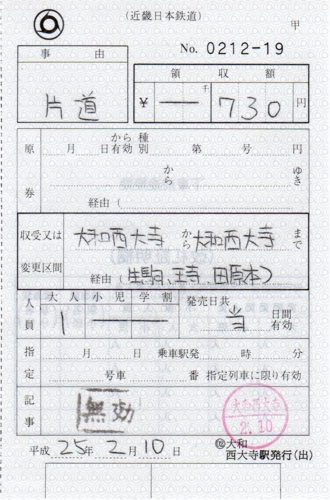 (近畿日本鉄道)
甲
No. 0212-19
事由
片道
領収額
¥ 千 730 円
原券
から種
月 日有効別 第 号 円
から ゆき
経由 ( )
収受又は
変更区間
大和西大寺 から 大和西大寺 まで
経由 (生駒、王寺、田原本)
人員
大人 小児 学割
1
発売日共
当 日間有効
指定
月 日 乗車駅発 時 分
号車 番 指定列車に限り有効
記事
無効
大和西大寺
2.10
平成 25年 2月 10日
大和
西大寺駅発行(出)